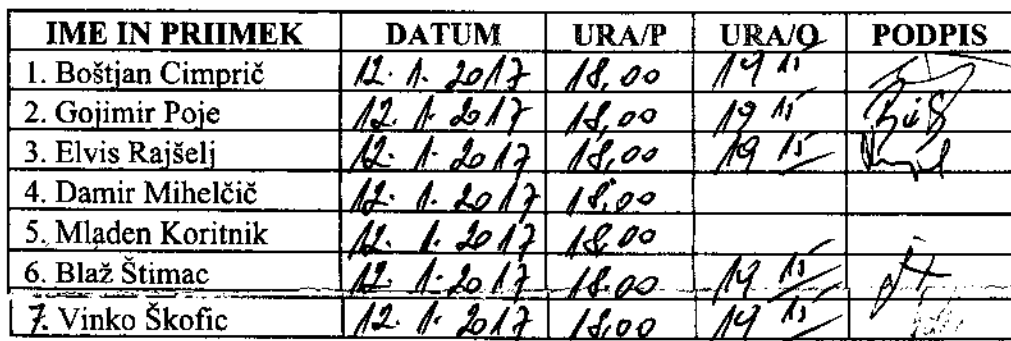 IME IN PRIIMEK DATUM URA/P URA/O PODPIS
1. Boštjan Cimprič 12. 1. 2017 18,00 19 15
2. Gojimir Poje 12. 1. 2017 18,00 19 15
3. Elvis Rajšelj 12. 1. 2017 18,00 19 15
4. Damir Mihelčič 12. 1. 2017 18,00
5. Mladen Koritnik 12. 1. 2017 18,00
6. Blaž Štimac 12. 1. 2017 18.00 19 15
7. Vinko Škofic 12. 1. 2017 18,00 19 15